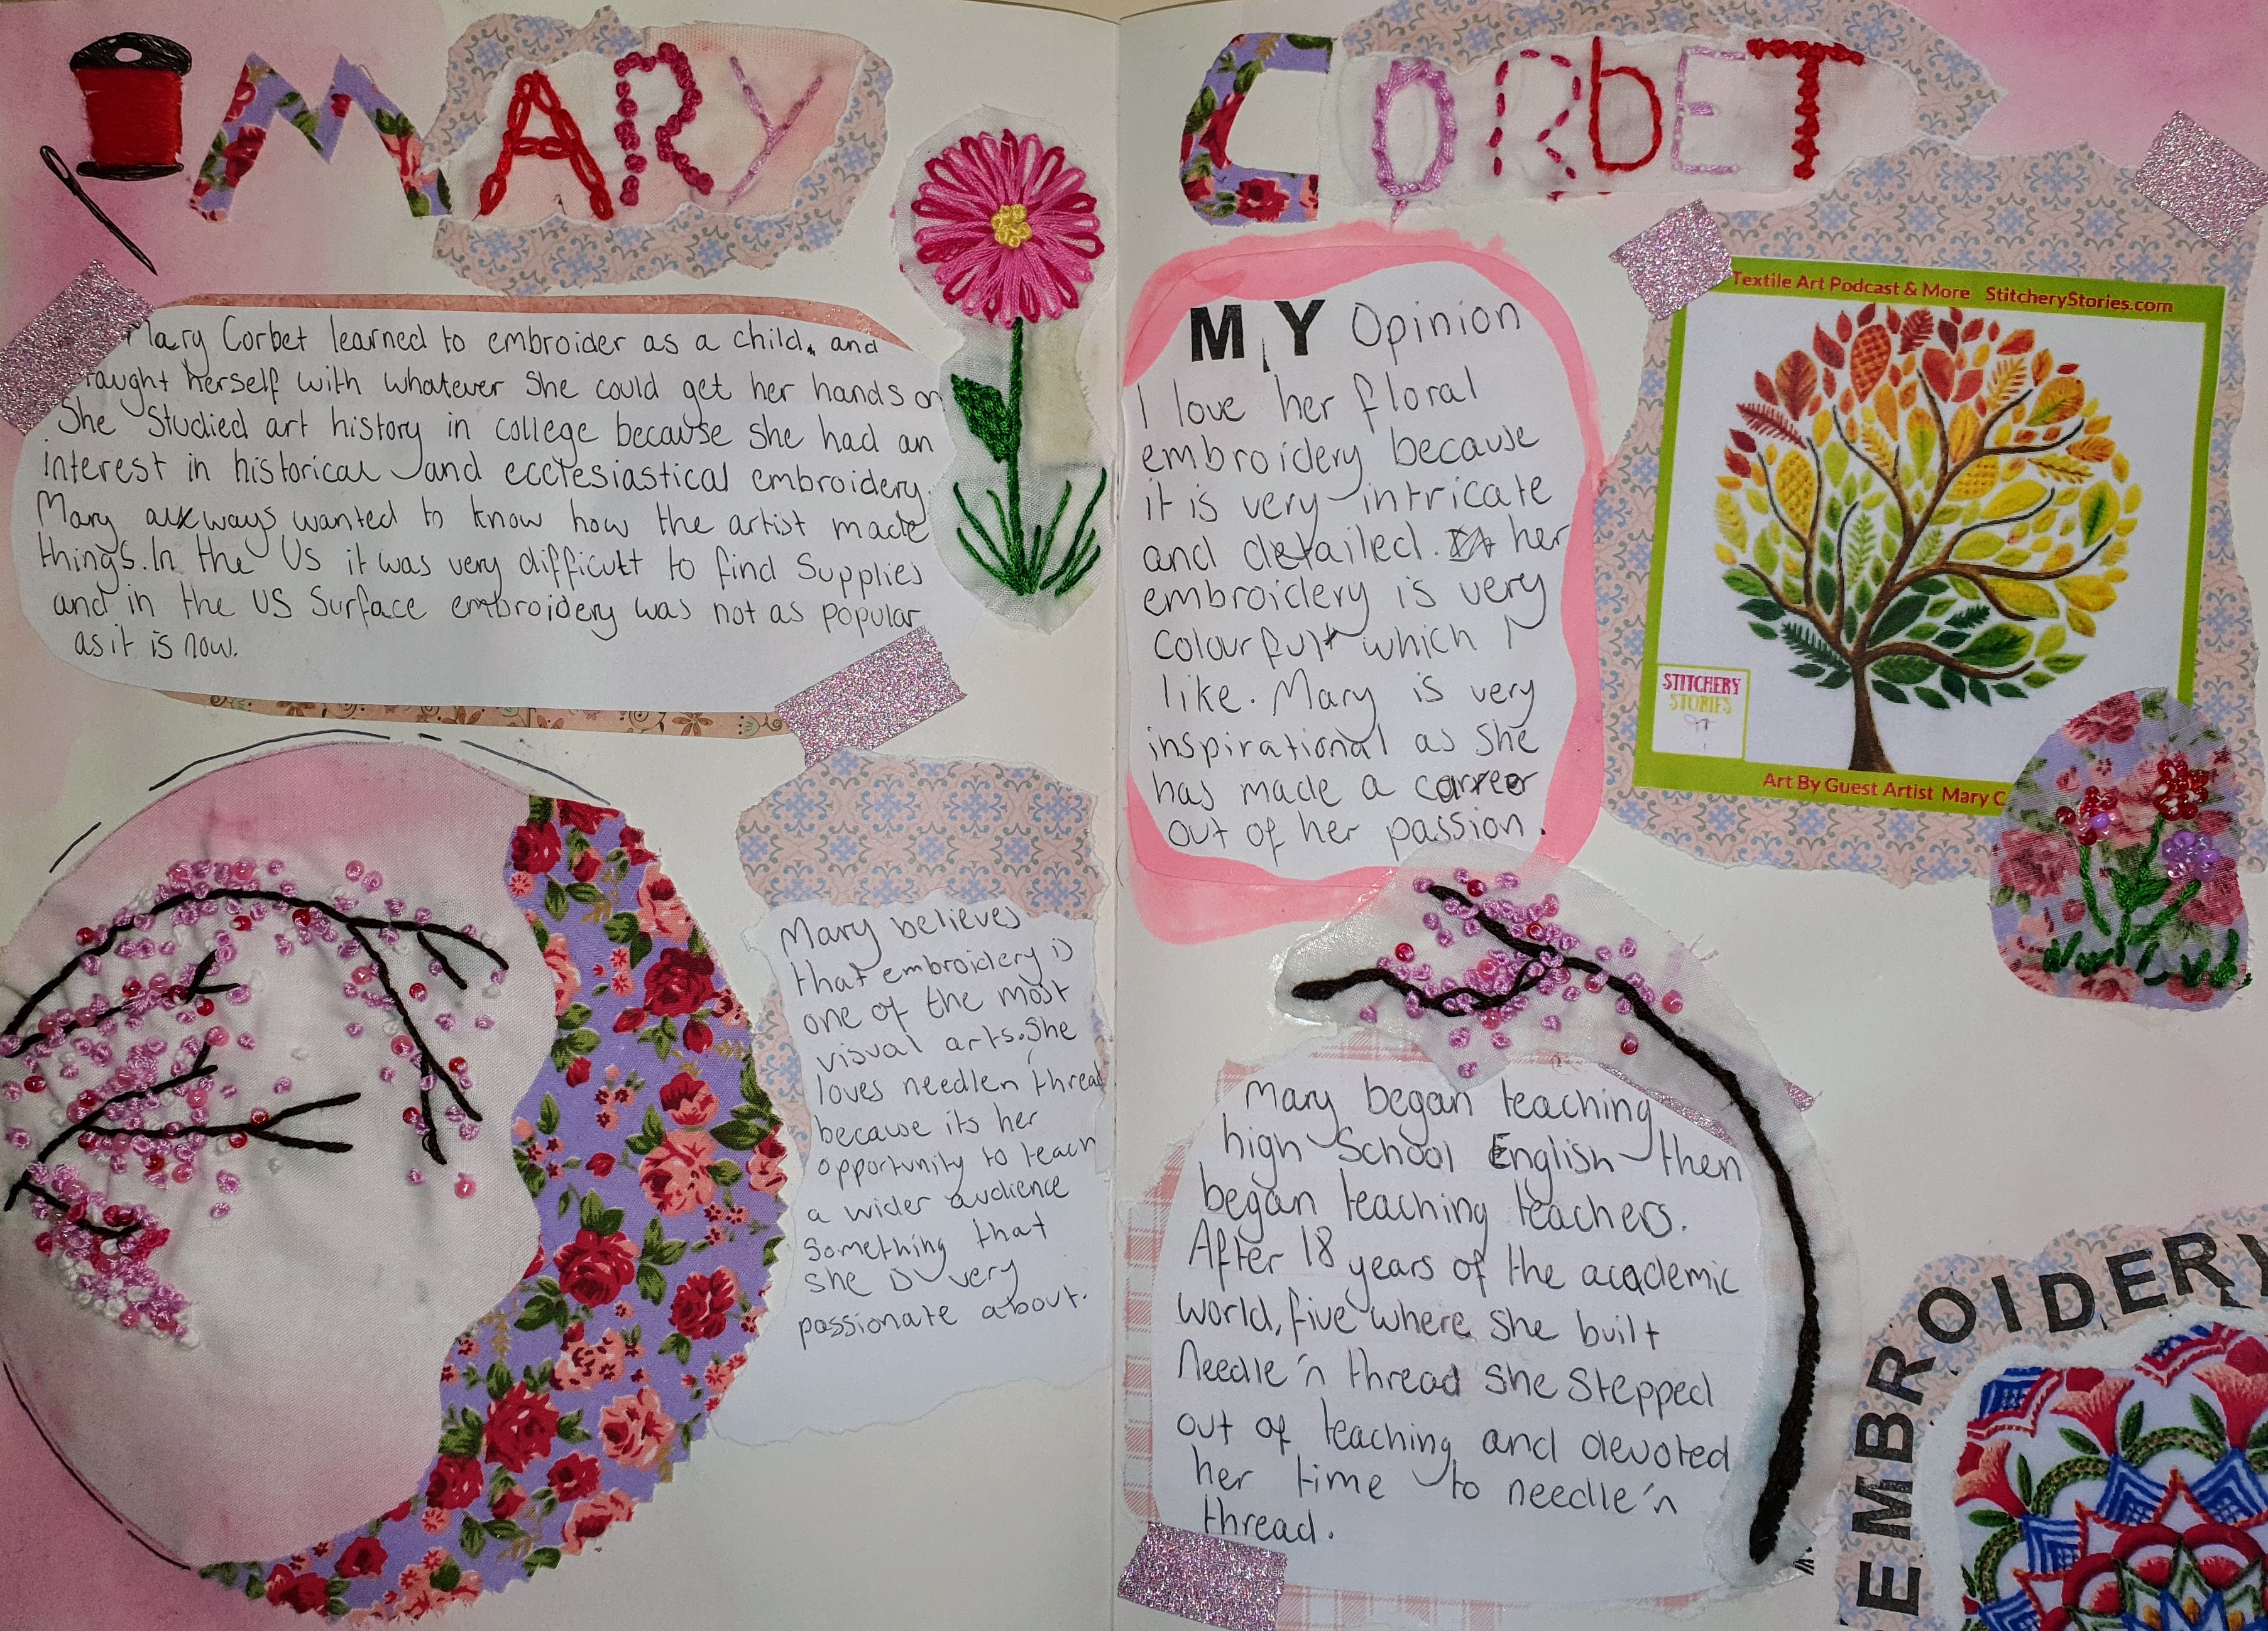 MARY
CORBET
Mary Corbet learned to embroider as a child, and
taught herself with whatever She could get her hands on
She Studied art history in college because she had an
interest in historical and ecclesiastical embroidery.
Mary always wanted to know how the artist made
things. In the US it was very difficult to find Supplies
and in the US Surface embroidery was not as popular
as it is now.
Mary believes
that embroidery is
one of the most
visual arts. She
loves needlen thread
because its her
opportunity to teach
a wider audience
something that
she is very
passionate about.
MY Opinion
I love her floral
embroidery because
it is very intricate
and detailed. her
embroidery is very
colourful which I
like. Mary is very
inspirational as she
has made a carreer
out of her passion.
Textile Art Podcast & More StitcheryStories.com
STITCHERY
STORIES
Art By Guest Artist Mary C
Mary began teaching
high School English then
began teaching teachers.
After 18 years of the academic
world, five where she built
Needle 'n thread She Stepped
out of teaching and devoted
her time to needle 'n
thread.
EMBROIDERY